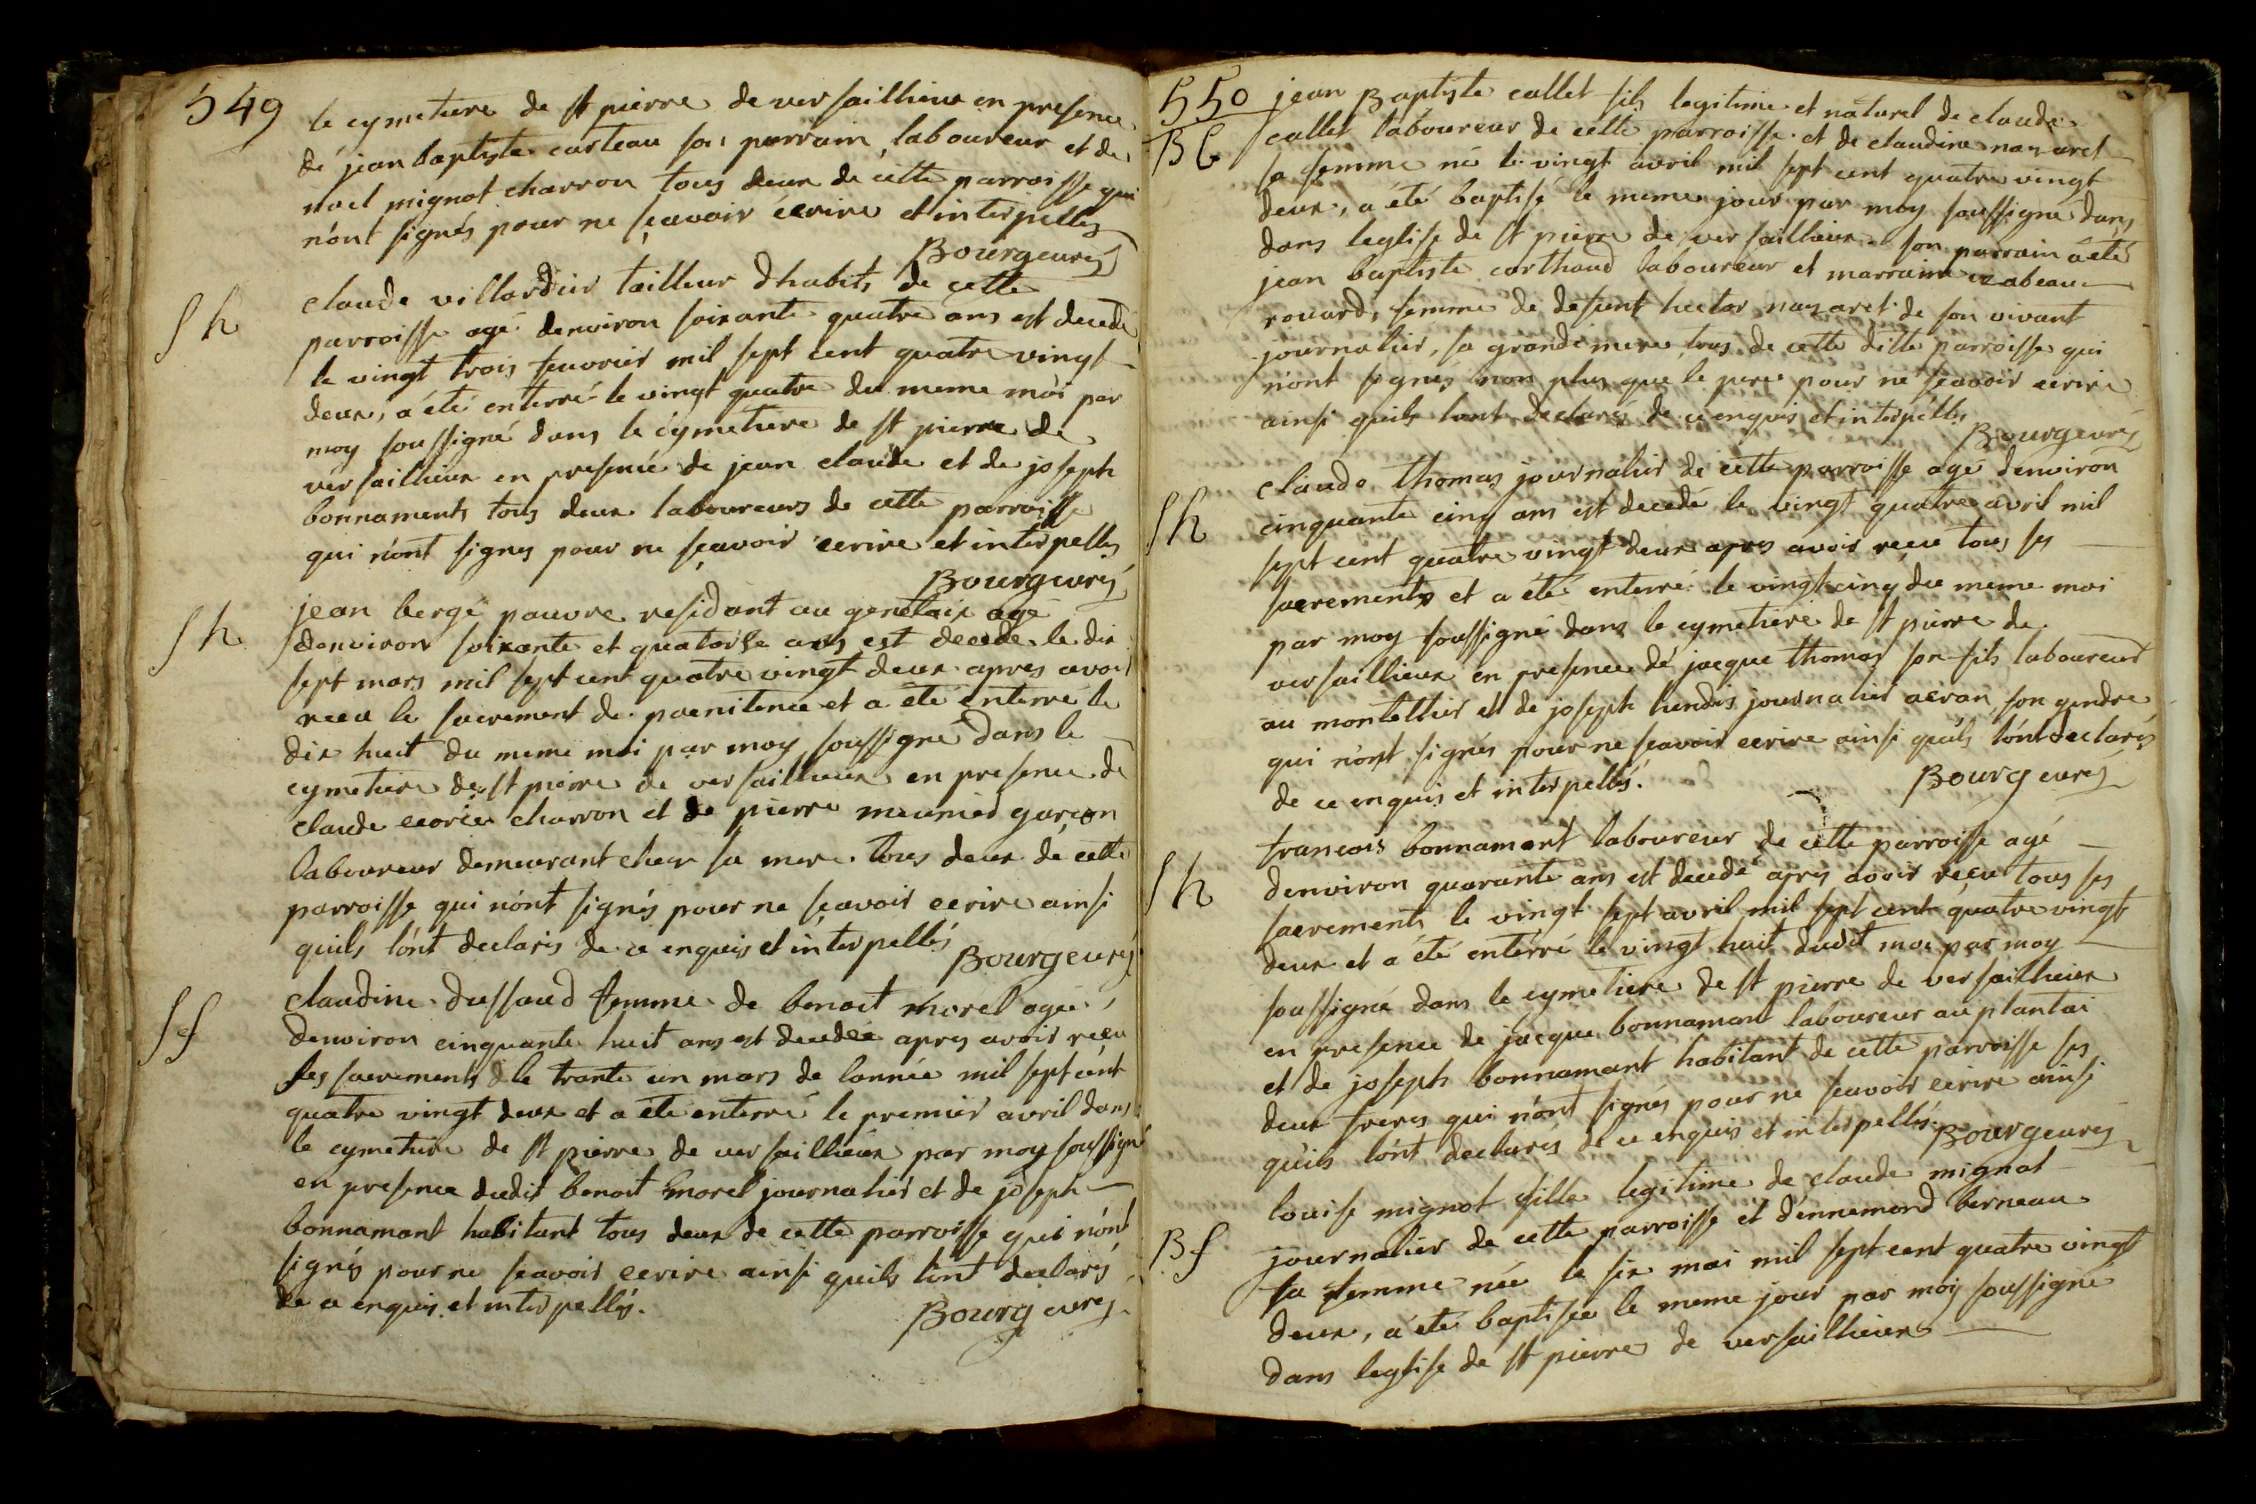 549
le cymetiere de st pierre de versaillieux en presence
de jean baptiste carteau son parrain laboureur et de
noel mignot charron tous deux de cette parroisse qui
n'ont signés pour ne sçavoir écrire et interpellés
Bourg curé
sh
claude villardier tailleur dhabits de cette
parroisse agé denviron soixante quatre ans est decedé
le vingt trois feuvrier mil sept cent quatre vingt
deux, a été enterré le vingt quatre du meme moi par
moy soussigné dans le cymetiere de st pierre de
versaillieux en presence de jean claude et de joseph
bonnaments tous deux laboureurs de cette parroisse
qui n'ont signes pour ne sçavoir ecrire et interpellés
Bourg curé
sh
jean bergé pauvre residant au genetaix agé
denviron soixante et quatorse ans est decede le dix
sept mars mil sept cent quatre vingt deux apres avoir
recu le sacrement de paenitence et a été enterré le
dix huit du meme moi par moy soussigné dans le
cymetiere de st pierre de versaillieux en presence de
claude charron et de pierre meunier garcon
laboureur demeurant chez sa mere tous deux de cette
parroisse qui n'ont signés pour ne sçavoir ecrire ainsi
quils l'ont declarés de ce enquis et interpellés
Bourg curé
sf
claudine dussaud femme de benoit morel agée
denviron cinquante huit ans est decedée apres avoir reçu
ses sacrements le trante un mars de lannée mil sept cent
quatre vingt deux et a été enterré le premier avril dans
le cymetiere de st pierre de versaillieux par moy soussigné
en presence dudit benoit morel journalier et de joseph
bonnamant habitant tous deux de cette parroisse qui n'ont
signés pour ne scavoir ecrire ainsi quils l'ont declarés
de ce enquis et interpellés.
Bourg curé
550
jean Baptiste collet fils legitime et naturel de claude
BG
collet laboureur de cette parroisse et de claudine nazaret
sa femme né le vingt avril mil sept cent quatre vingt
deux, a été baptisé le meme jour par moy soussigné dans
dans leglise de st pierre de versaillieux son parrain a été
jean baptiste corthaud laboureur et marraine izabeau
rouard, femme de defunt hector nazaret de son vivant
journalier, sa grandemere tous de cette ditte parroisse qui
n'ont signés non plus que le pere pour ne scavoir ecrire
ainsi quils lont declarés de ce enquis et interpellés
Bourg curé
sh
claude thomas journalier de cette parroisse agé denviron
cinquante cinq ans est decedé le vingt quatre avril mil
sept cent quatre vingt deux apres avoir reçu tous ses
sacrements et a été enterré le vingt cinq du meme moi
par moy soussigné dans le cymetiere de st pierre de
versaillieux en presence de jacque thomas son fils laboureur
au montellier et de joseph journalier son gendre
qui n'ont signés pour ne scavoir ecrire ainsi quils l'ont declarés
de ce enquis et interpellés.
Bourg curé
sh
francois bonnamant laboureur de cette parroisse agé
denviron quarante ans est decedé apres avoir reçu tous ses
sacrements le vingt sept avril mil sept cent quatre vingt
deux et a été enterré le vingt huit dudit moi par moy
soussigné dans le cymetiere de st pierre de versaillieux
en presence de jacque bonnamant laboureur au plantai
et de joseph bonnamant habitant de cette parroisse ses
deux freres qui n'ont signés pour ne scavoir ecrire ainsi
quils l'ont declarés de ce enquis et interpellés.
Bourg curé
louise mignot fille legitime de claude mignot
Bf
journalier de cette parroisse et dennemond berneau
sa femme née le six mai mil sept cent quatre vingt
deux, a été baptisée le meme jour par moy soussigné
dans leglise de st pierre de versaillieux